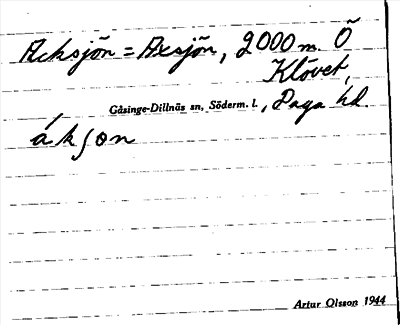 Acksjön = Axsjön, 2000 m. Ö
Klövet,
Gåsinge-Dillnäs sn, Söderm. l., Daga hd.
áksǫn
Artur Olsson 1944